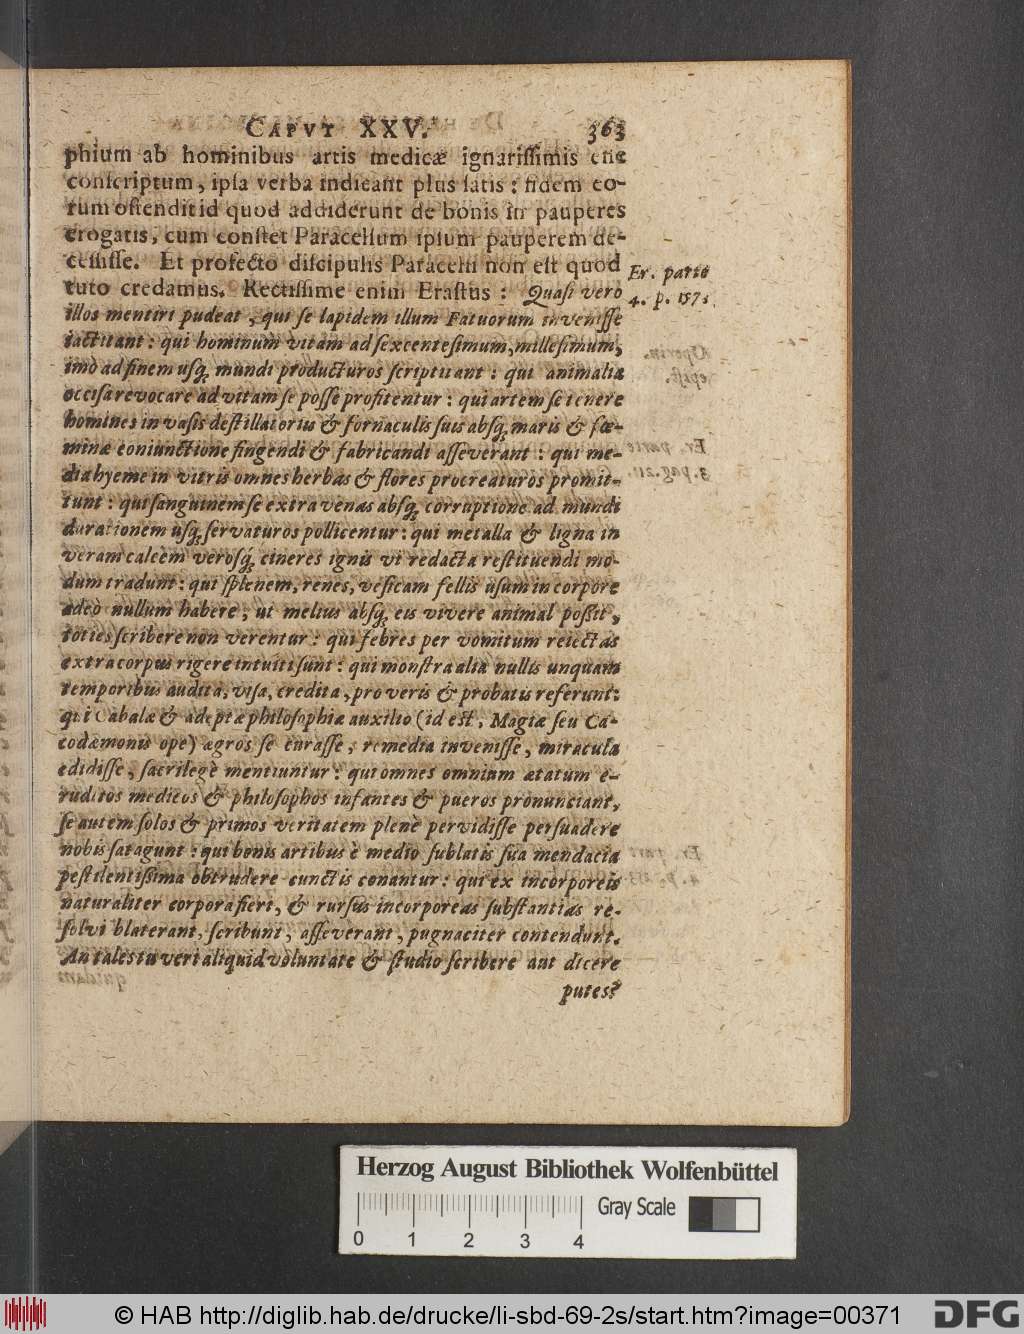 CAPVT XXV. 363
phium ab hominibus artis medicæ ignarissimis esse
conscriptum, ipsa verba indicant plus satis: fidem eo-
rum ostendit id quod addiderunt de bonis in pauperes
erogatis, cum constet Paracelsum ipsum pauperem de-
cessisse. Et profectò discipulis Paracelsi non est quod
tuto credamus. Rectissime enim Erastus: Quasi verò
Er. parte
4. p. 157.
illos mentiri pudeat, qui se lapidem illum Fatuorum invenisse
iactitant: qui hominum vitam ad sexcentesimum, millesimum,
imò ad finem usq; mundi producturos scriptitant: qui animalia
occisa revocare ad vitam se posse profitentur: qui artem se tenere
homines in vasis destillatoriis & fornaculis suis absq; maris & fœ-
minæ coniunctione fingendi & fabricandi asseverant: qui me-
dia hyeme in vitris omnes herbas & flores procreaturos promit-
tunt: qui sanguinem se extra venas absq; corruptione ad mundi
durationem usq; servaturos pollicentur: qui metalla & ligna in
veram calcem verosq; cineres ignis vi redacta restituendi mo-
dum tradunt: qui splenem, renes, vesicam fellis usum in corpore
adeò nullum habere, ut melius absq; eis vivere animal possit,
toties scribere non verentur: qui febres per vomitum reiectas
extra corpus rigere intuiti sunt: qui monstra alia nullis unquam
temporibus audita, visa, credita, pro veris & probatis referunt:
qui Cabalæ & adeptæ philosophiæ auxilio (id est, Magiæ seu Ca-
codæmonis ope) ægros se curasse, remedia invenisse, miracula
edidisse, sacrilegè mentiuntur: qui omnes omnium ætatum e-
ruditos medicos & philosophos infantes & pueros pronunciant,
se autem solos & primos veritatem plenè pervidisse persuadere
nobis satagunt: qui bonis artibus è medio sublatis sua mendacia
pestilentissima obtrudere cunctis conantur: qui ex incorporeis
naturaliter corpora fieri, & rursus incorporeas substantias re-
solvi blaterant, scribunt, asseverant, pugnaciter contendunt.
An tales tu veri aliquid voluntate & studio scribere aut dicere
putes?
Herzog August Bibliothek Wolfenbüttel
0 1 2 3 4
Gray Scale
© HAB http://diglib.hab.de/drucke/li-sbd-69-2s/start.htm?image=00371
DFG